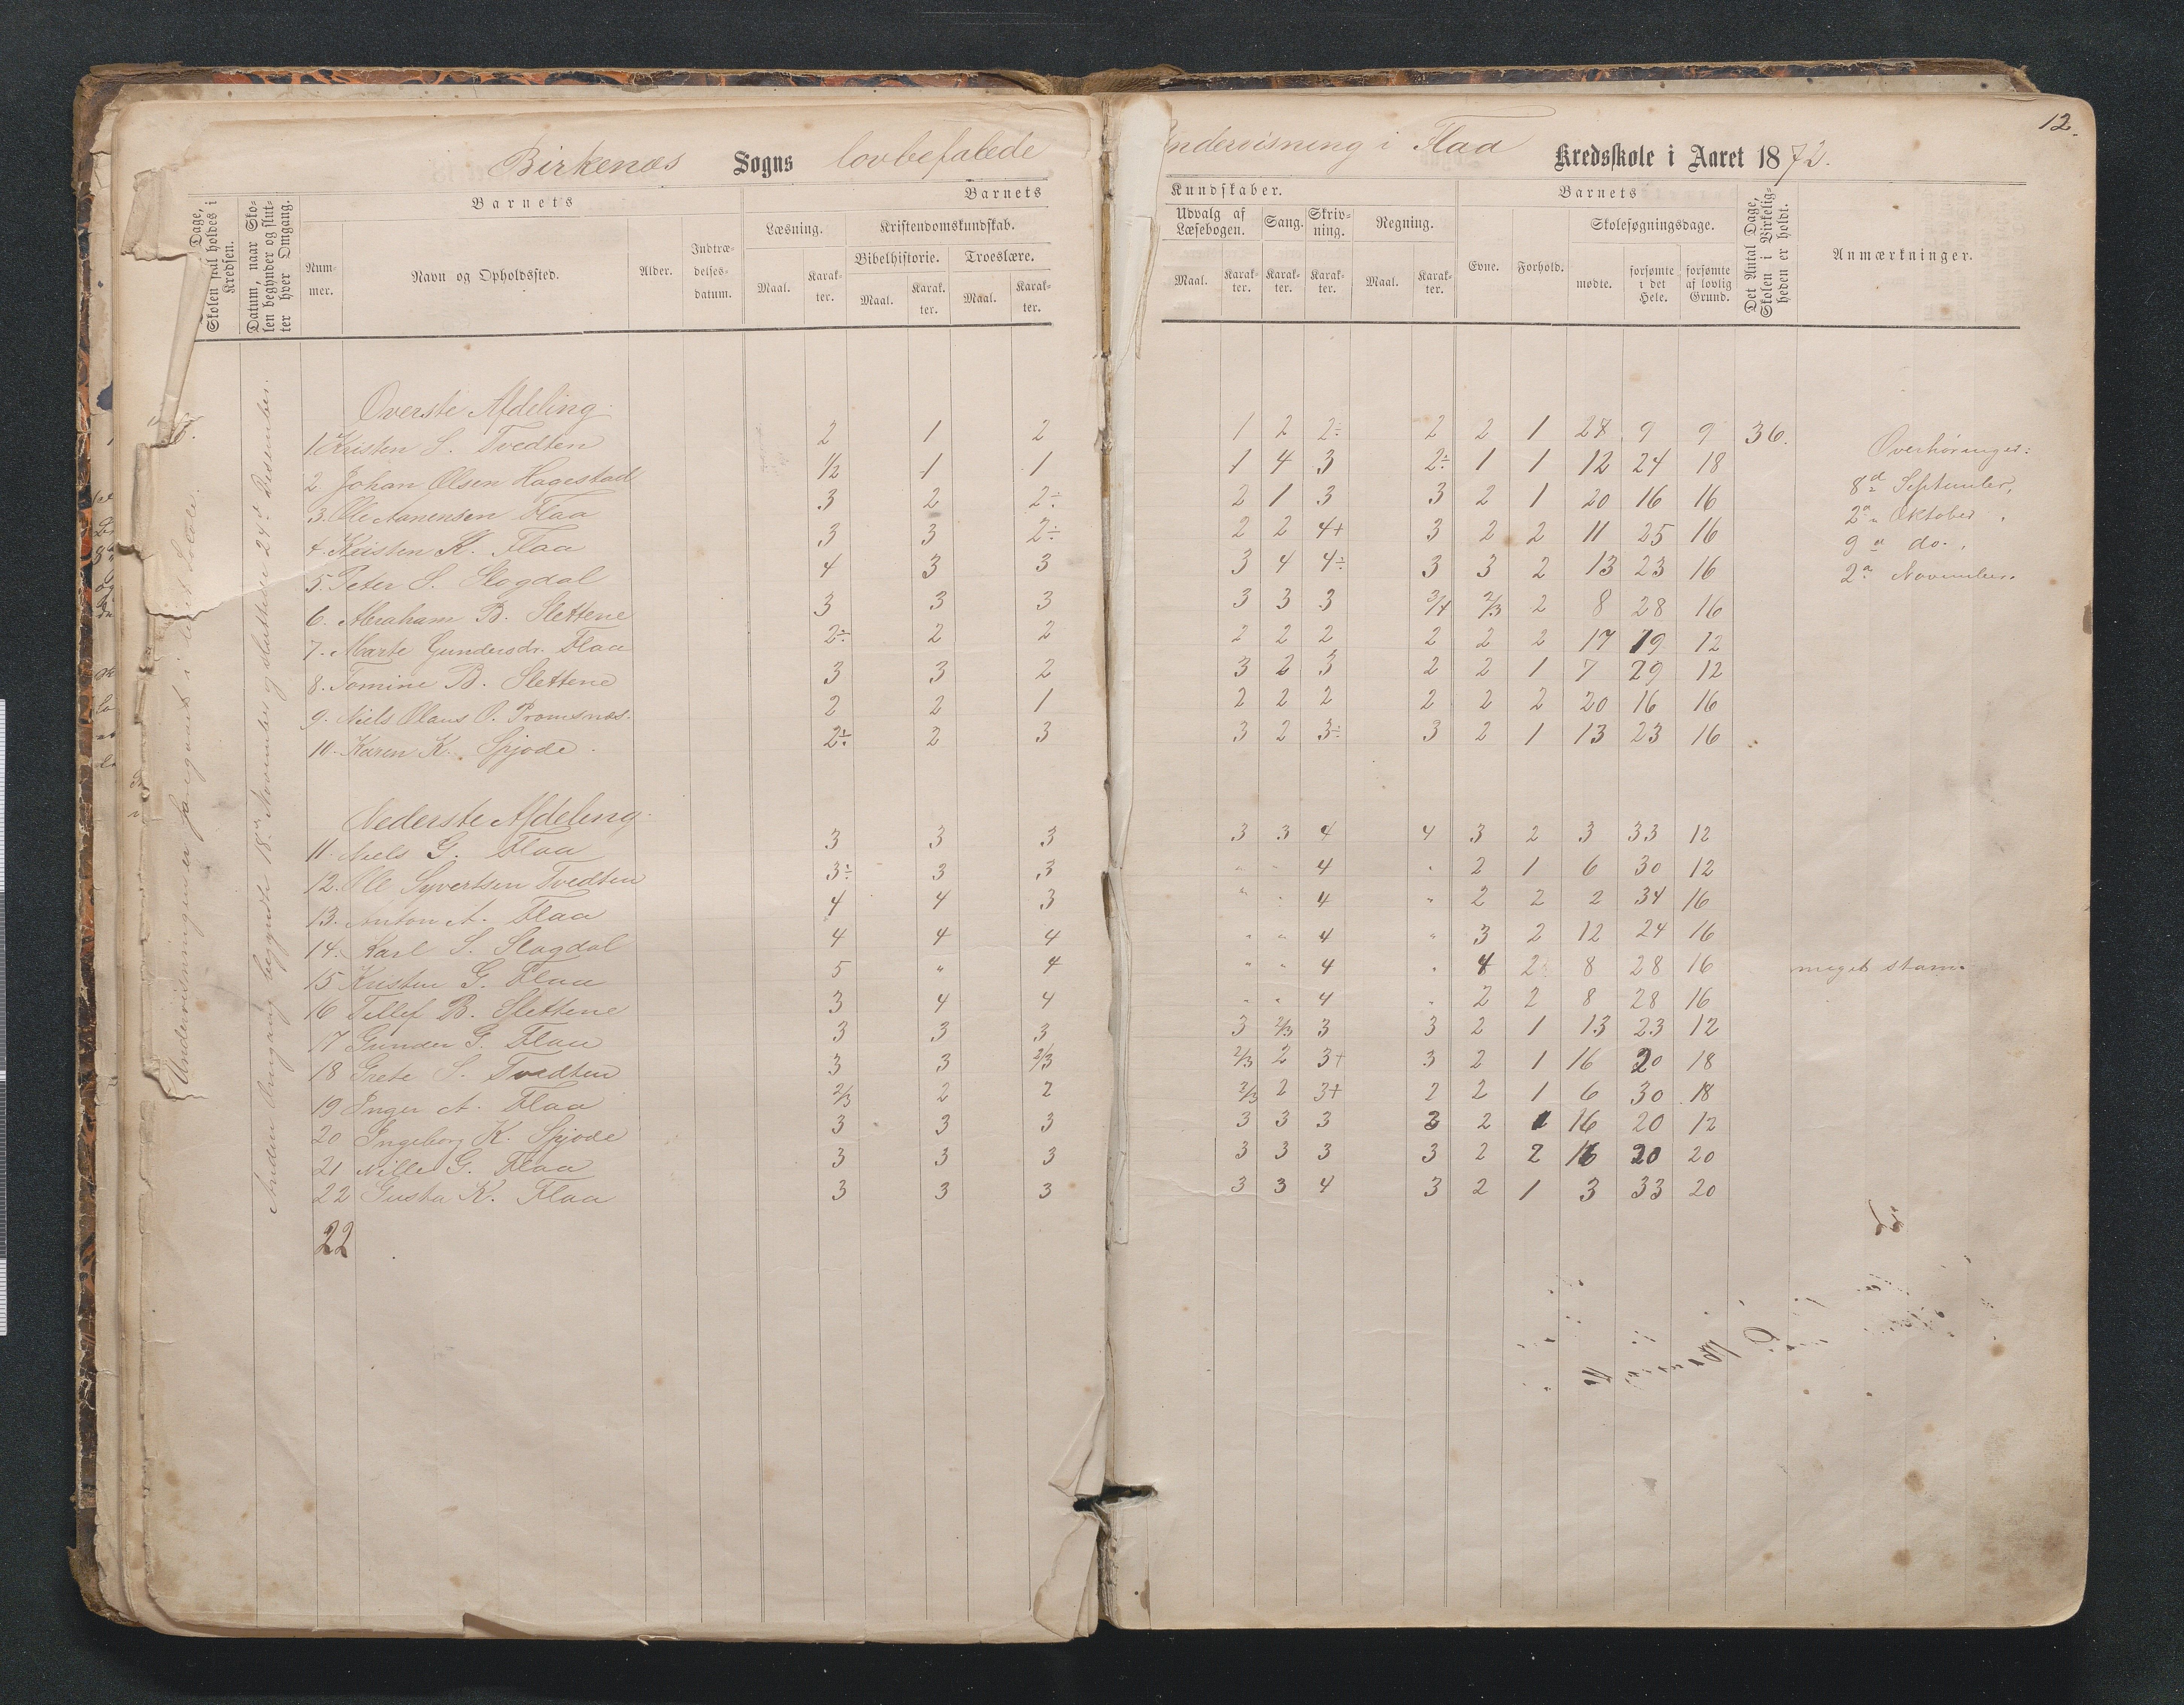 12.
Birkenæs Sogns lovbefalede Undervisning i Flaa Kredsskole i Aaret 1872.
Dage, Skolen skal holdes i Kredsen.
Datum, naar Skolen begynder og slutter hver Omgang.
Barnets
Nummer.
Navn og Opholdssted.
Alder.
Indtrædelsesdatum.
Barnets Kundskaber.
Læsning.
Maal. Karakter.
Kristendomskundskab.
Bibelhistorie. Troeslære.
Maal. Karakter. Maal. Karakter.
Udvalg af Læsebogen. Sang. Skrivning. Regning.
Maal. Karakter. Karakter. Karakter. Maal. Karakter.
Barnets
Evne. Forhold.
Skolesøgningsdage.
mødte. forsømte i det Hele. forsømte af lovlig Grund.
Det Antal Dage, Skolen i Virkeligheden er holdt.
Anmærkninger.
Undervisningen er foregaaet i leiet Lokale.
Anden Omgang begyndte 18de November og sluttede 24d Desember.
Øverste Afdeling.
1. Kristen S. Tvedten 2 1 2 1 2 2÷ 2 2 1 27 9 9 36.
2. Johan Olsen Hagestad 1/2 1 1 1 4 3 2÷ 1 1 12 24 18
3. Ole Aanensen Flaa 3 2 2÷ 2 1 3 3 2 1 20 16 16
4. Kristen K. Flaa 3 3 2÷ 2 2 4+ 3 2 2 11 25 16
5. Peter S. Slogdal 4 3 3 3 4 4÷ 3 3 2 13 23 16
6. Abraham B. Slettene 3 3 3 3 3 3 3/4 2/3 2 8 28 16
7. Marte Gundersdr. Flaa 2÷ 2 2 2 2 2 2 2 2 17 19 12
8. Tomine B. Slettene 3 3 2 3 2 3 2 2 1 7 29 12
9. Niels Olaus O. 2 2 1 2 2 2 2 2 2 20 16 16
10. Karen K. Spjode. 2÷ 2 3 3 2 3÷ 3 2 1 13 23 16
Overhøringer:
8d September,
2d Oktober,
9d do.,
2d November.
Nederste Afdeling.
11. Niels G. Flaa 3 3 3 3 3 4 4 3 2 3 33 12
12. Ole Syvertsen Tvedten 3÷ 3 3 " " 4 " 2 1 6 30 12
13. Anton A. Flaa 4 4 3 " " 4 " 2 2 2 34 16
14. Karl S. Slogdal 4 4 4 " " 4 " 3 2 12 24 16
15 Kristen G. Flaa 5 " 4 " " 4 " 4 2 8 28 16 meget stam.
16 Tellef B. Slettene 3 4 4 " " 4 " 2 2 8 28 16
17 Gunder G. Flaa 3 3 3 3 2/3 3 3 2 1 13 23 12
18 Grete S. Tvedten 3 3 2/3 2/3 2 3+ 3 2 1 16 20 18
19 Inger A. Flaa 2/3 2 2 2/3 2 3+ 2 2 1 6 30 18
20 Ingeborg K. Spjode 3 3 3 3 3 3 3 2 1 16 20 12
21 Nille G. Flaa 3 3 3 3 3 3 3 2 2 16 20 20
22 Gusta K. Flaa 3 3 3 3 3 4 3 2 1 3 33 20
22